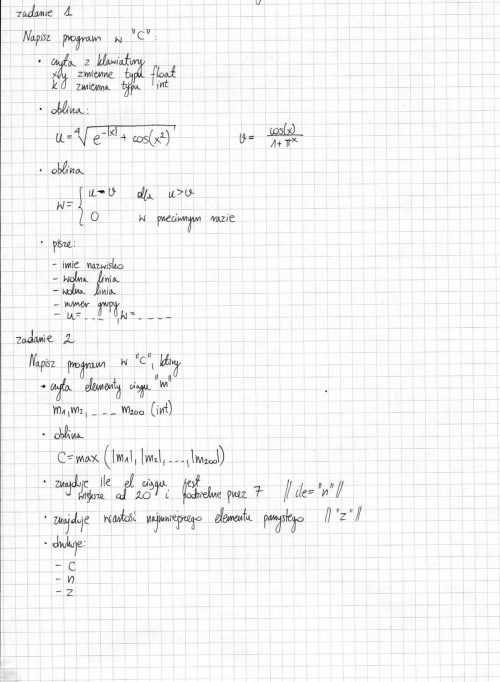 zadanie 1
Napisz program w "C":
• czyta z klawiatury
x,y zmienne typu float
k zmienna typu int
• oblicza:
u = ⁴√(e^(-|x|) + cos(x²))    v = cos(x) / (1+π^x)
• oblicza
w = { u-v dla u>v
0 w przeciwnym razie
• pisze:
- imie nazwisko
- wolna linia
- wolna linia
- numer grupy
- u= ----, w= -----
zadanie 2
Napisz program w "C", który
• czyta elementy ciągu "m"
m1, m2, ---- m200 (int)
• oblicza
C = max (|m1|, |m2|, ..., |m200|)
• znajduje ile el ciągu jest
większe od 20 i podzielne przez 7 // ile= "n" //
• znajduje wartość najmniejszego elementu parzystego // "z" //
• drukuje:
- C
- n
- z